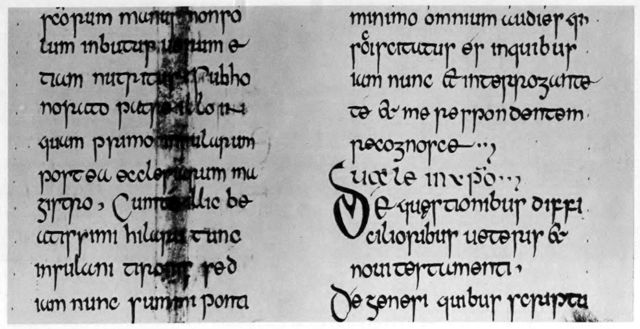 scorum manu non so
lum inbutus uerum e
tiam nutritus sub ho
norato patre illo in
quam primo insularum
postea ecclesiarum ma
gistro, Cum te illic be
atissimi hilarii tunc
insulani tironis sed
iam nunc summi ponti
minimo omnium audies
sciscitatus es inquibus
iam nunc & interrogante
te & me respondentem
recognosce
uale in xpo
De questionibus diffi
cilioribus ueteris &
noui testamenti,
De genesi quibus scriptu